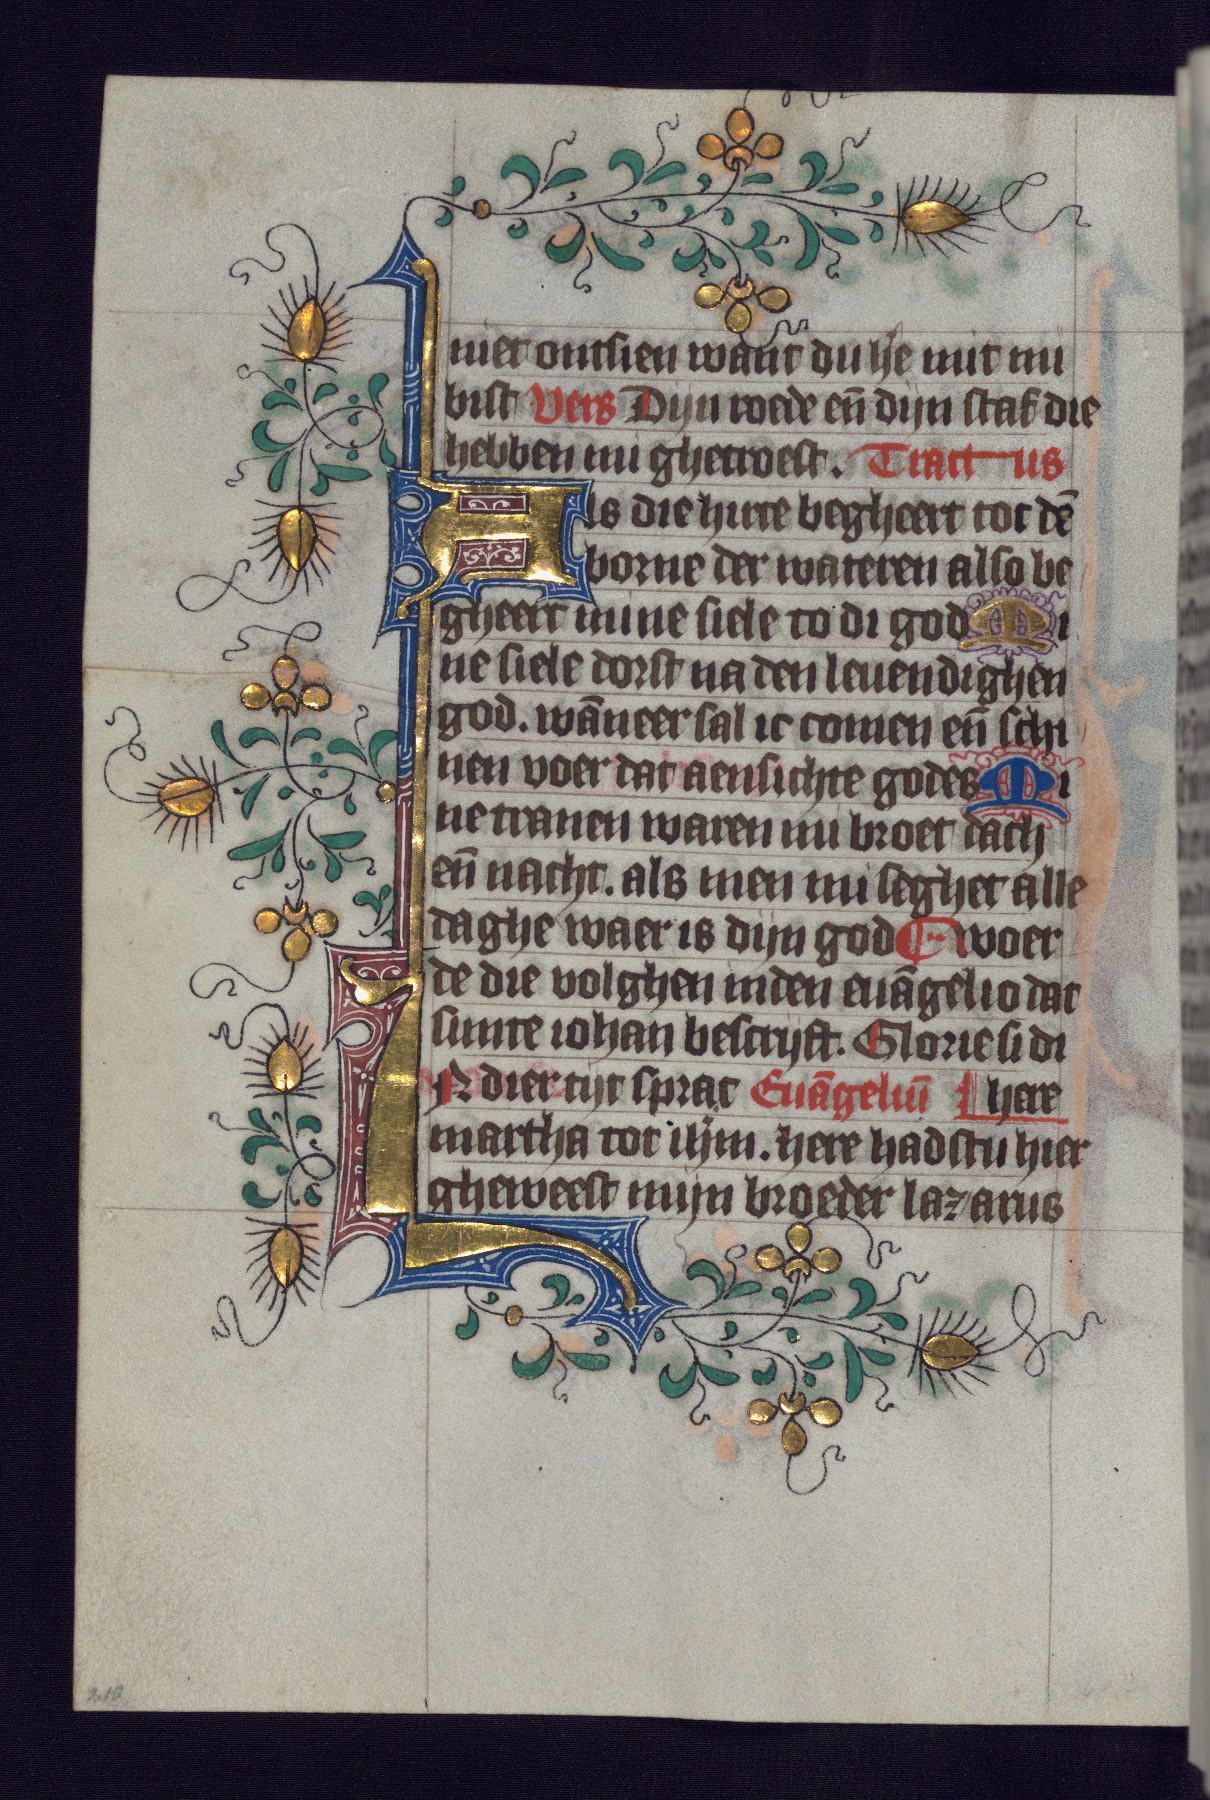 niet ontsien want du he̅ mit mi
bist Vers Dijn roede en̄ dijn staf die
hebben mi ghetroest. Tract us
Als die hirte begheert tot dē
borne der wateren also be
gheert mine siele to di god Mi
ne siele dorst na den leuendighen
god. wāneer sal ic comen en̄ schi
nen voer dat aensichte godes Mi
ne tranen waren mi broet dach
en̄ nacht. als men mi seghet alle
daghe waer is dijn god Ewoer
de die volghen inden euāgelio dat
sunte iohan bescrijft. Glorie si di
IN dier tijt sprac Euāgeliū here
martha tot ihm̄. here hadstu hier
gheweest mijn broeder lazarus